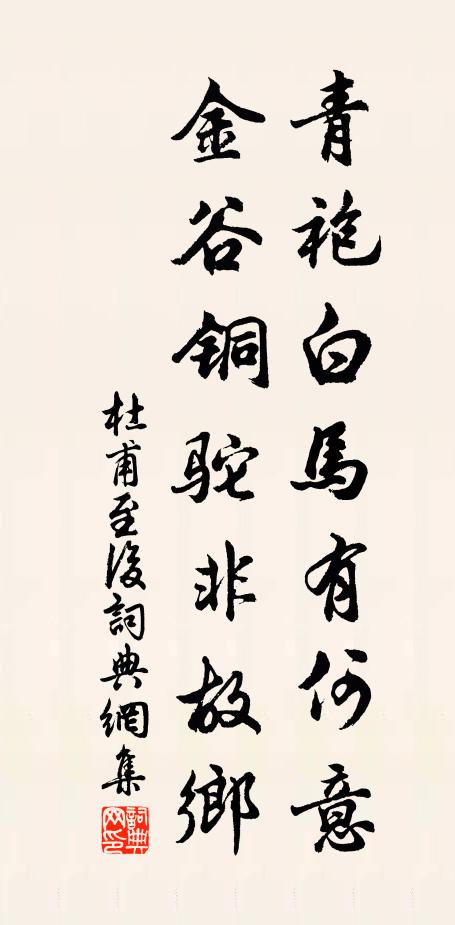 青袍白馬有何意
金谷铜驼非故鄉
杜甫至後詞典網集
詞典网印